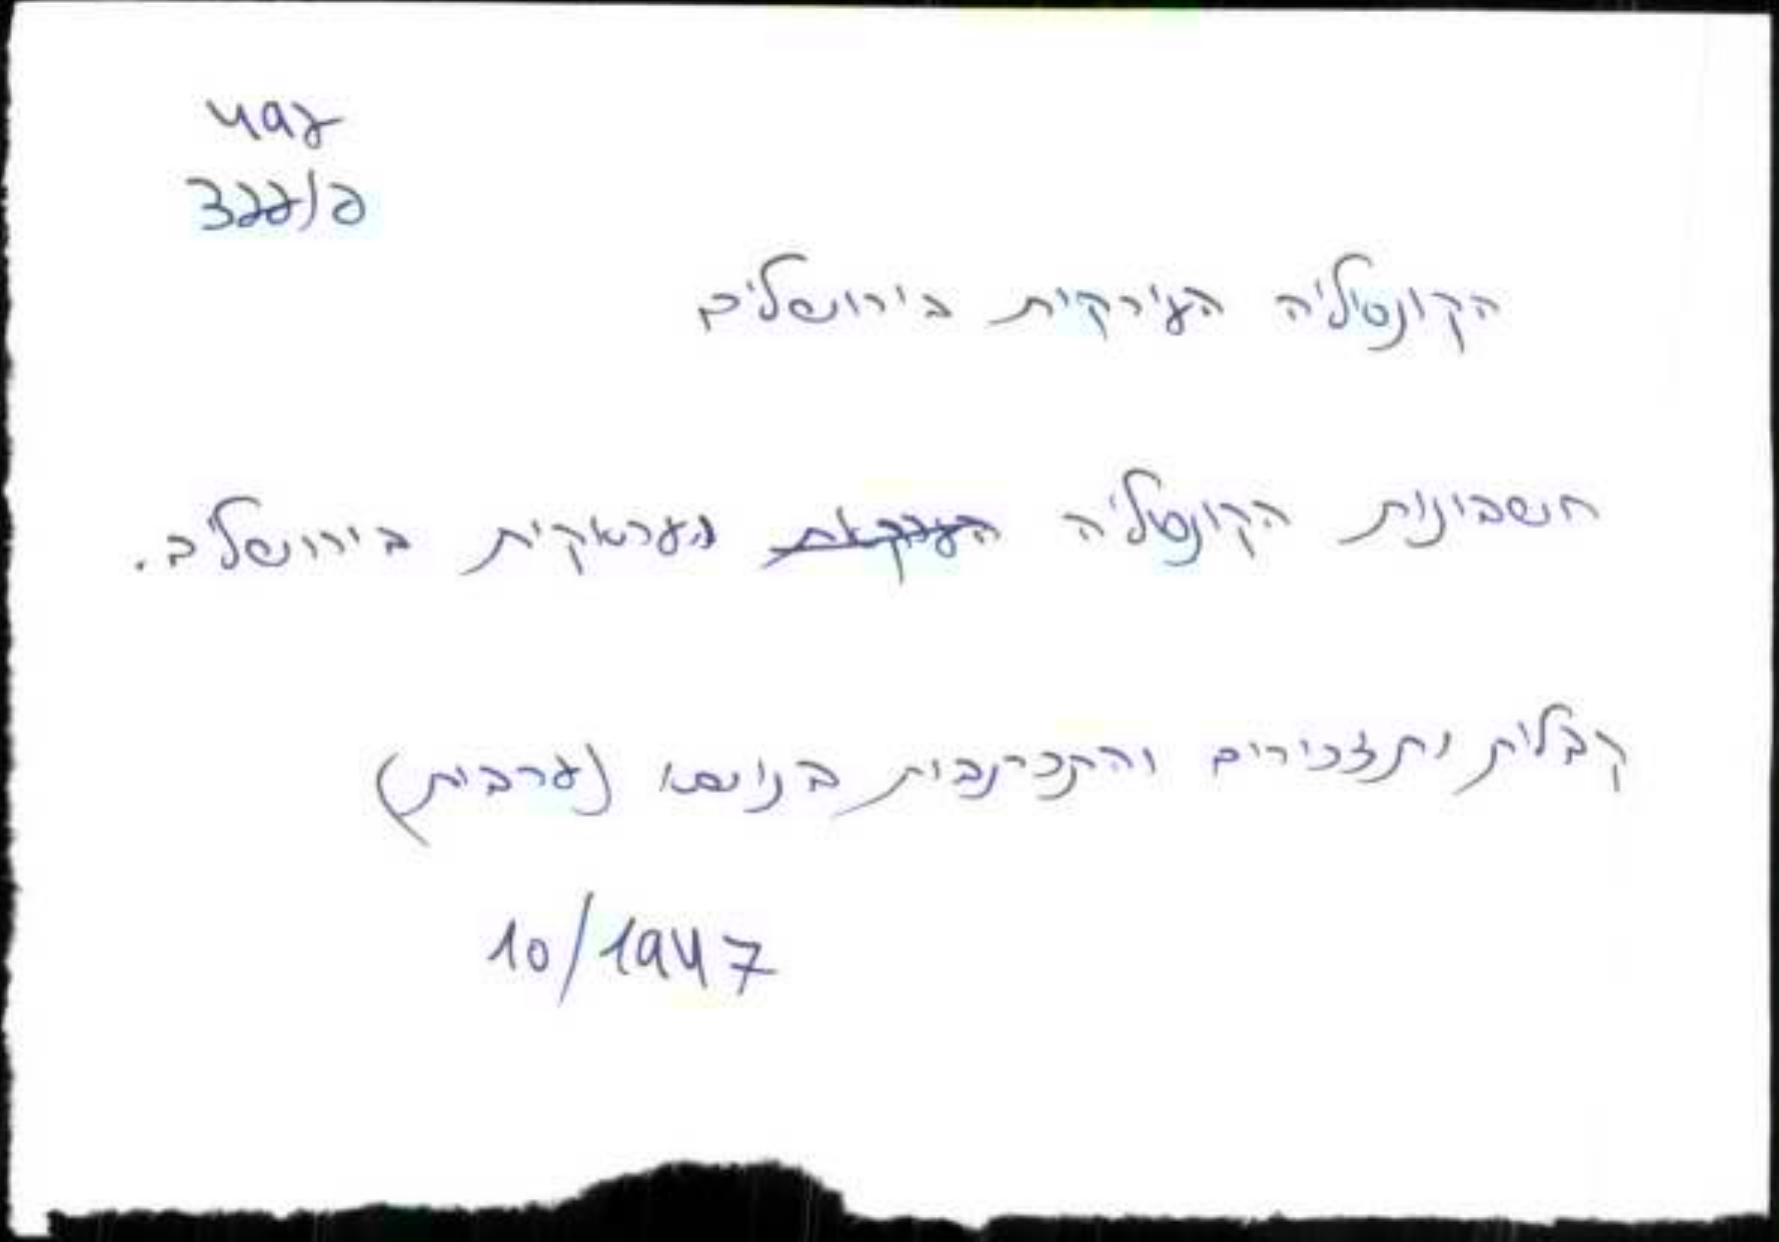 497
פ/322
הקונסוליה העירקית בירושלים
חשבונות הקונסוליה העראקית בירושלים.
קבלות ותזכירים והתכתבות בנושא (ערבית)
10/1947